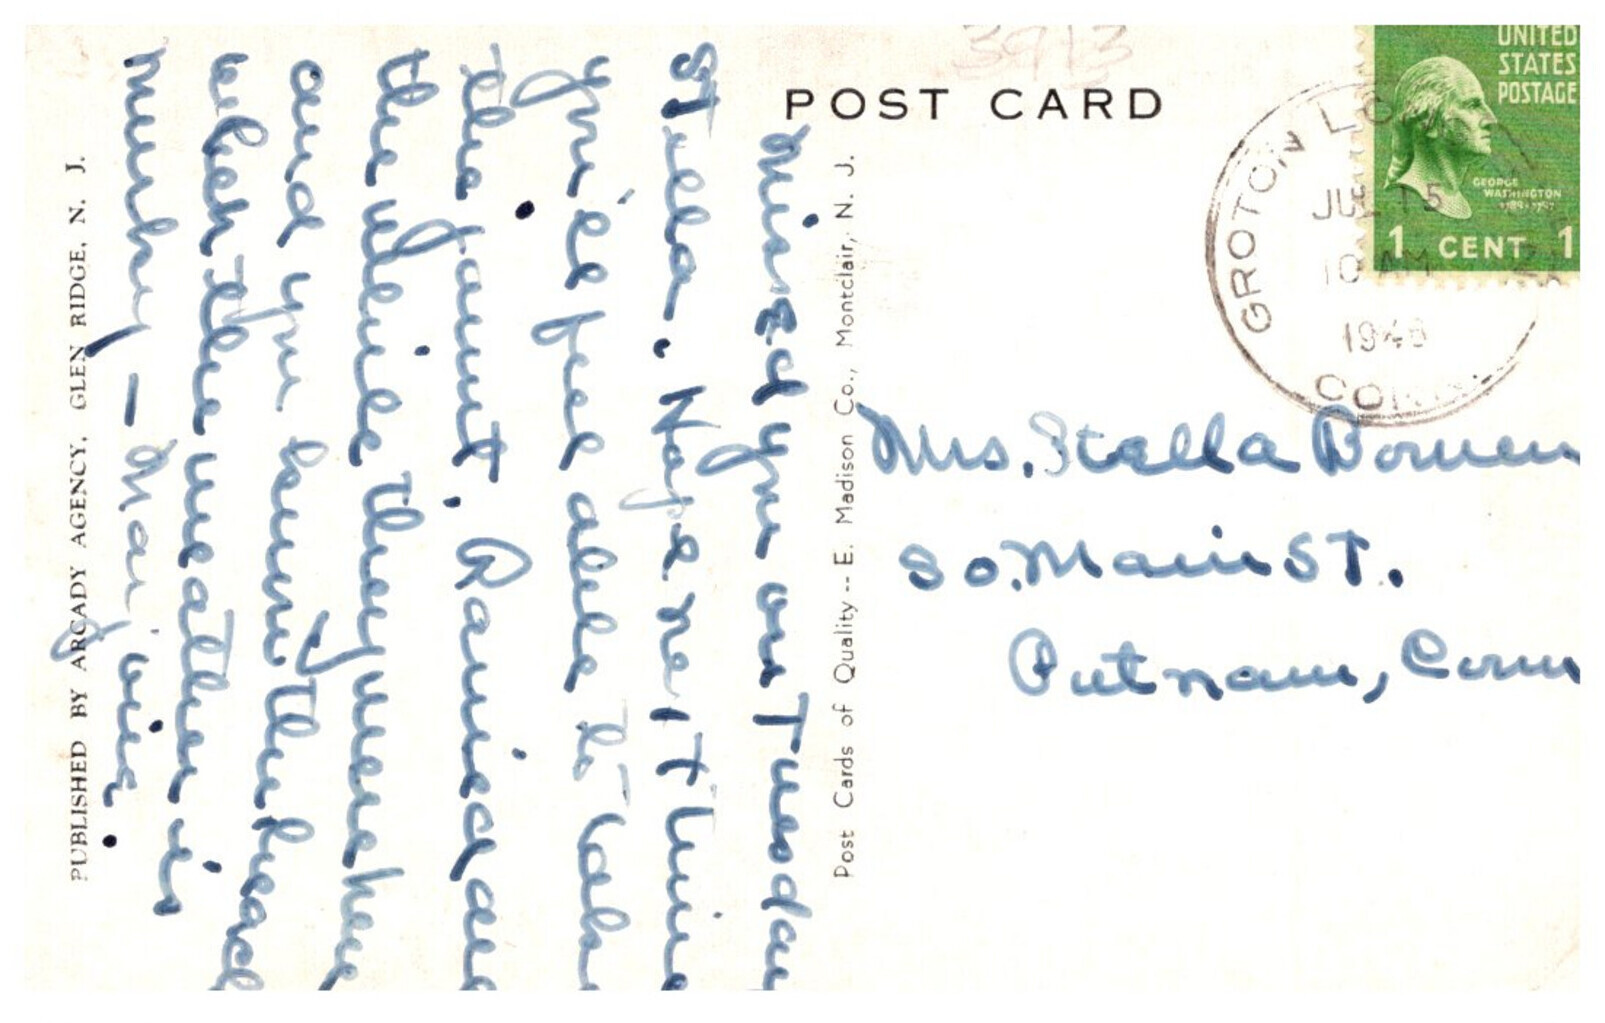 3913
POST CARD
UNITED
STATES
POSTAGE
GEORGE
WASHINGTON
1789-1797
1 CENT 1
GROTON LO
JUL 15
10 AM
CONN.
Mrs. Stella Bowen
So. Main St.
Putnam, Conn
Missed you on Tuesday
Stella. Hope next time
you'll feel able to take
the jaunt. Rained all
the while they were here
and you know the beach
when the weather is
murky – Marjorie.
Post Cards of Quality -- E. Madison Co., Montclair, N. J.
PUBLISHED BY ARCADY AGENCY, GLEN RIDGE, N. J.